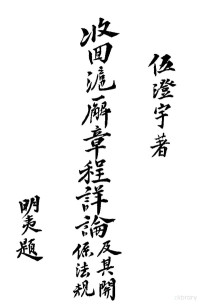 伍澄宇著
收回滬廨章程詳論及其關係法規
明夷題